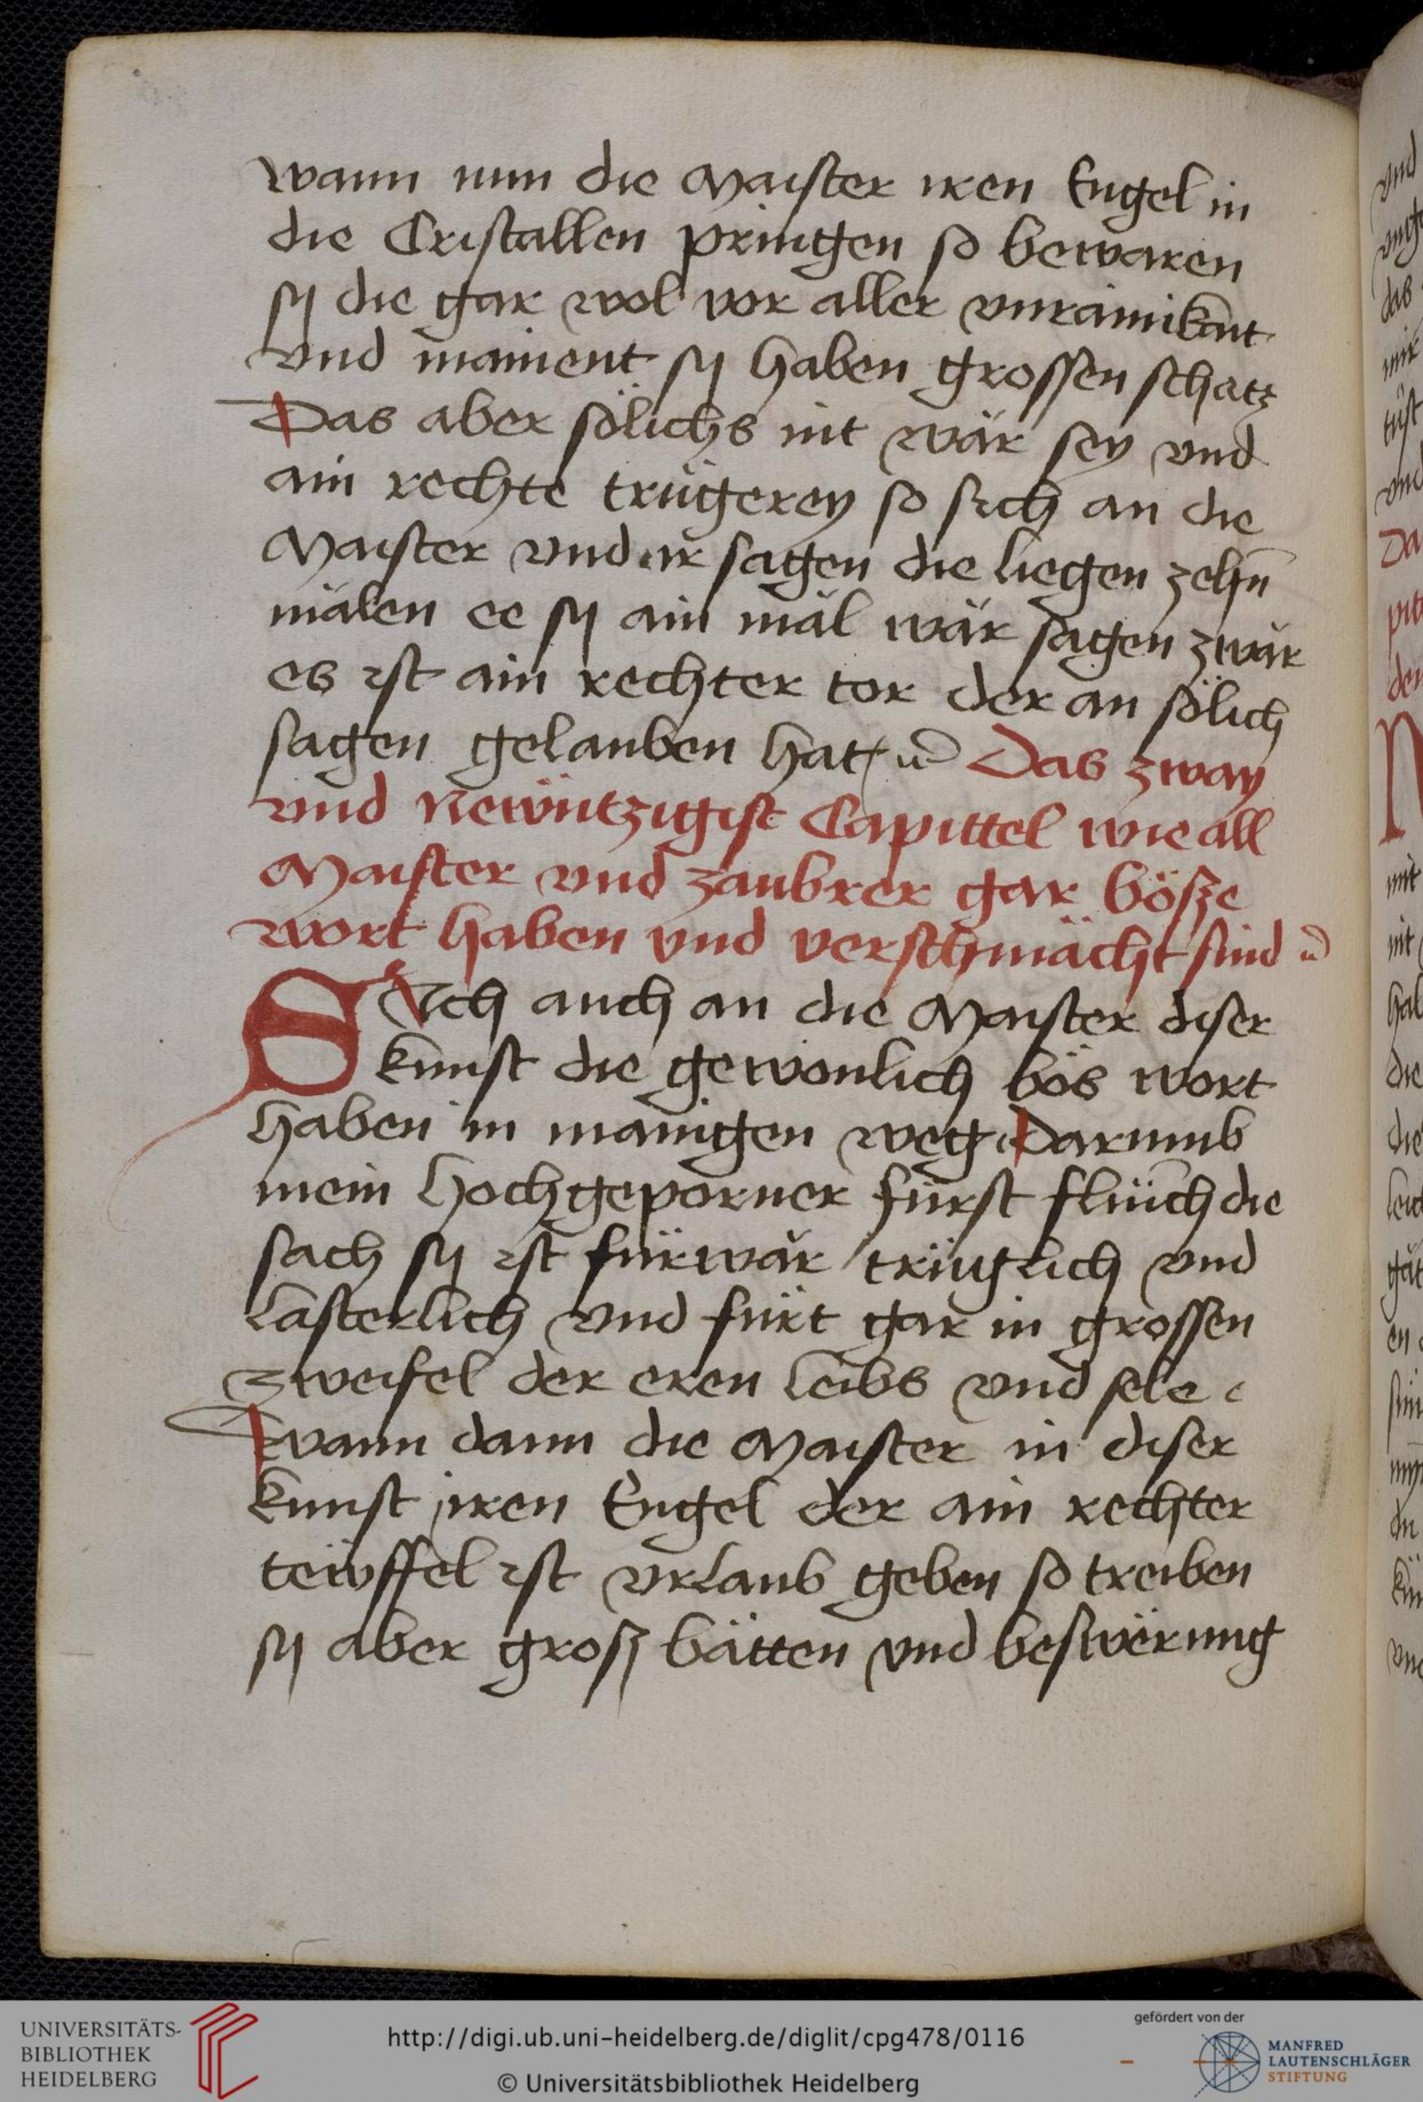 wann nun die Maister iren Engel in
die Cristallen pringen so bewaren
sÿ die gar wol vor aller vnrainikait
vnd mainent sÿ haben grossen schatz
Das aber sölichs nit wär sey vnd
ain rechte trügerey so sich an die
Maister vnd ir sagen die liegen zehn̄
mälen ee sÿ ain mäl wär sagen zwär
es ist ain rechter tor der an sölich
sagen gelauben hat Das zway
vnd Newntzigist Capittel wie all
Maister vnd zaubrer gar bösze
wort haben vnd verschmächt sind
SIch auch an die Maister diser
kunst die gewonlich bös wort
haben in manigen weg Darumb
mein Hochgeporner fürst flüch die
sach sÿ ist fürwär trüglich vnd
lästerlich vnd fürt gar in grossen
zweifel der eren leibs vnd sele
wann dann die Maister in diser
kunst iren Engel der ain rechter
tewffel ist vrlaub geben so treiben
sÿ aber grosz bätten vnd beswërung
UNIVERSITÄTS-
BIBLIOTHEK
HEIDELBERG
http://digi.ub.uni-heidelberg.de/diglit/cpg478/0116
© Universitätsbibliothek Heidelberg
gefördert von der
MANFRED
LAUTENSCHLÄGER
STIFTUNG